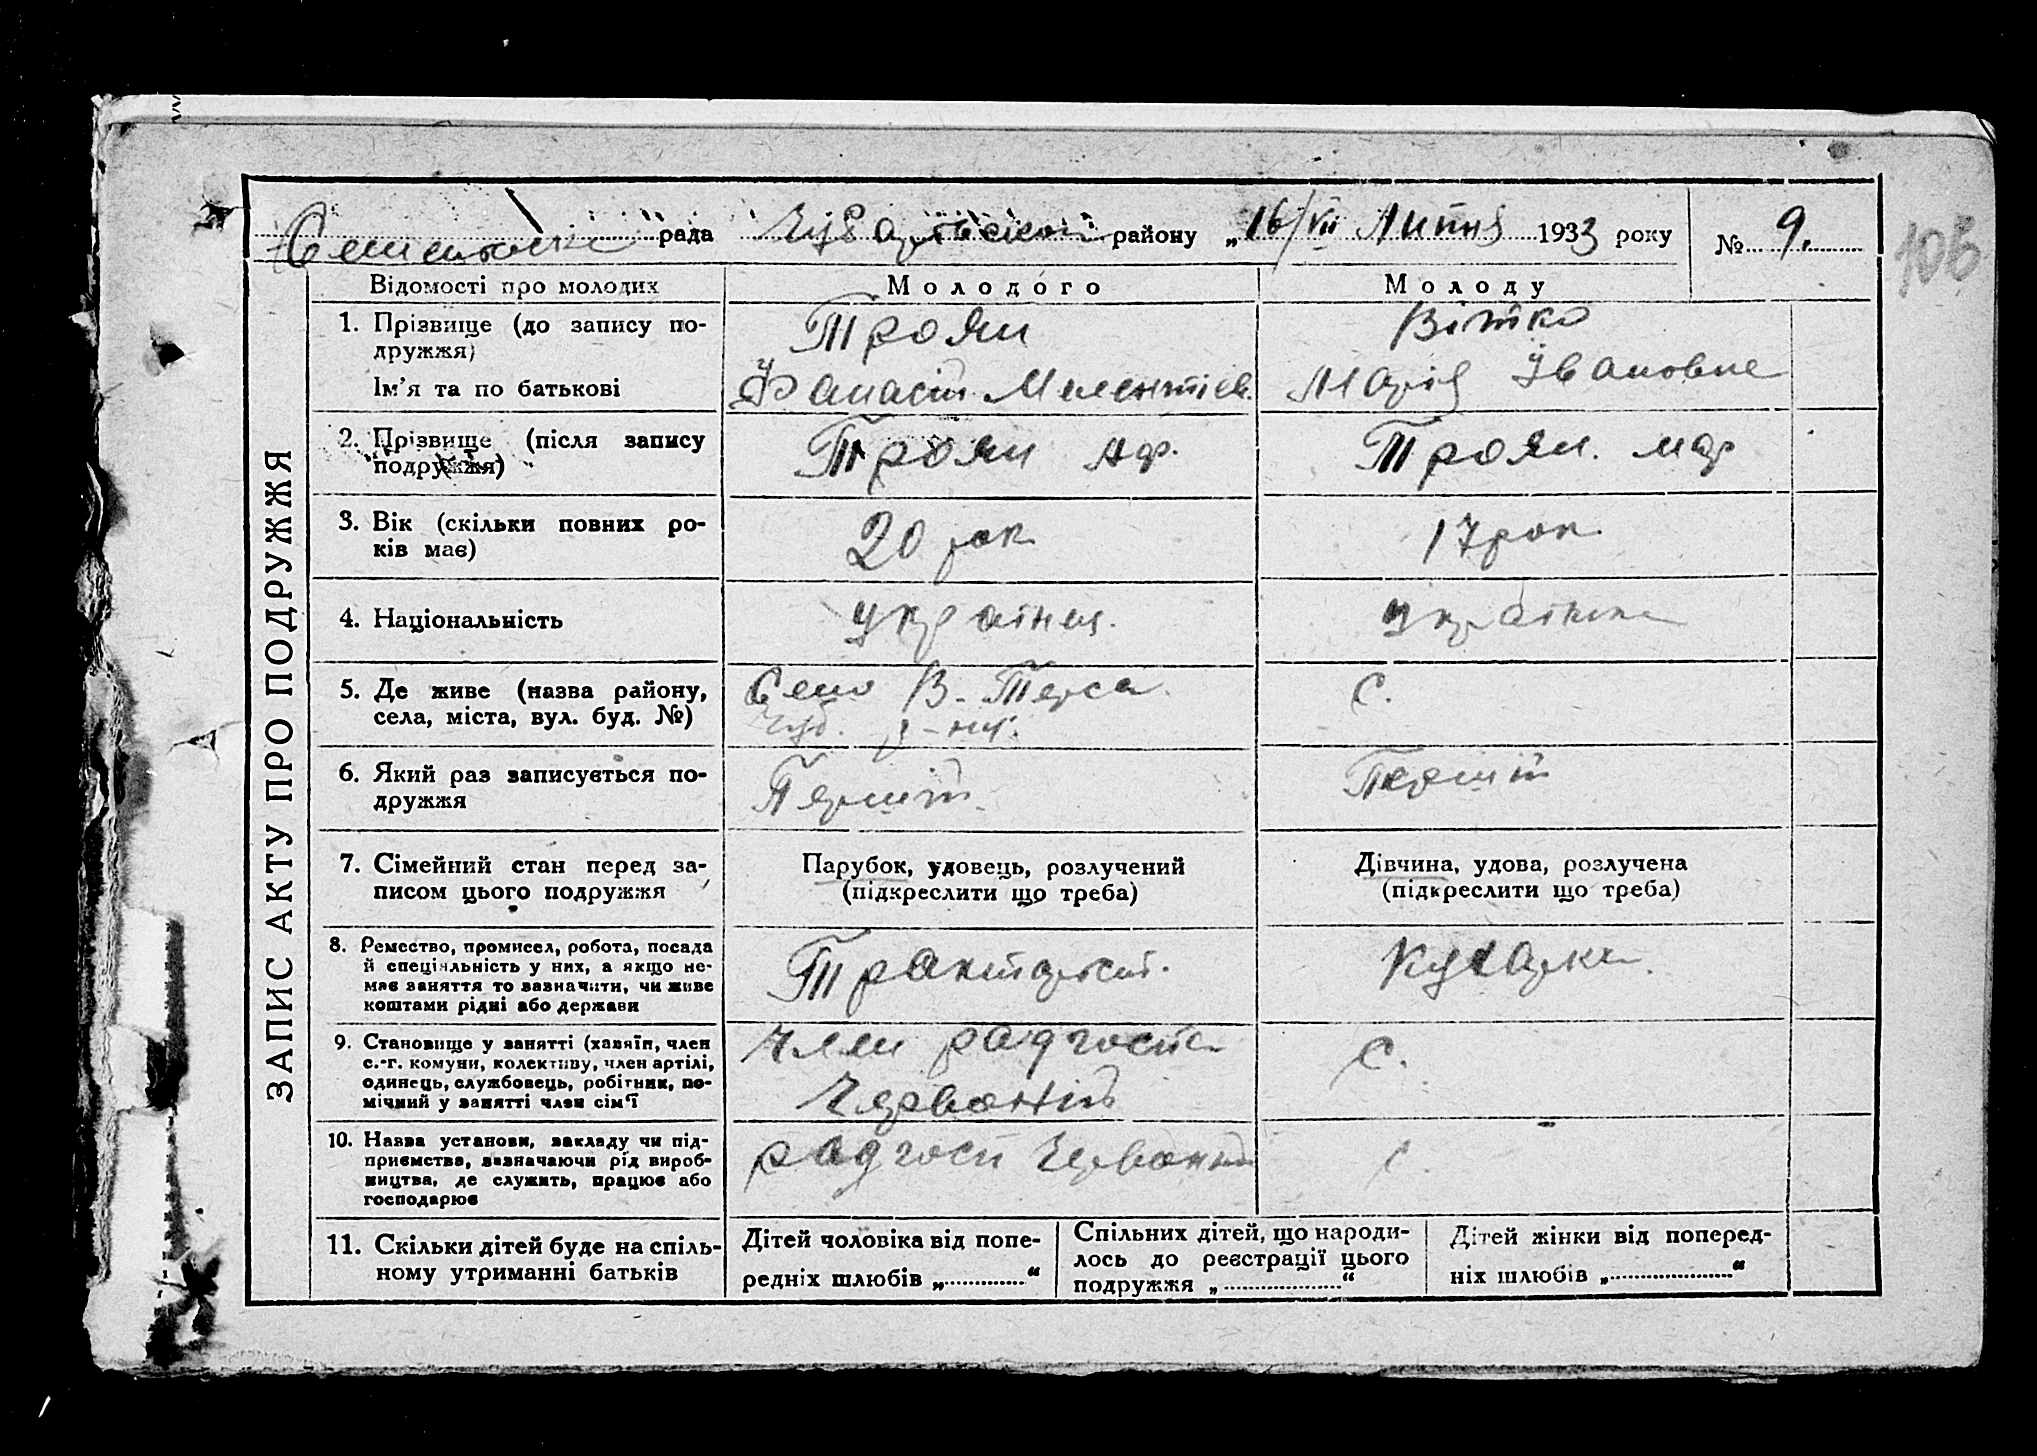 рада району „16/VII Липня 1933 року № 9.
105
ЗАПИС АКТУ ПРО ПОДРУЖЖЯ
Відомості про молодих Молодого Молоду
1. Прізвище (до запису по-
дружжя)
Троян Вітко
Ім'я та по батькові Мелентієв. Марія Івановна
2. Прізвище (після запису
подружжя)
Троян Аф. Троян. мар
3. Вік (скільки повних ро-
ків має)
20 рок 17 рок
4. Національність українц. українка
5. Де живе (назва району,
села, міста, вул. буд. №)
Село В. Терса. С.
Чуб. р-ну.
6. Який раз записується по-
дружжя
Перший Перший
7. Сімейний стан перед за-
писом цього подружжя
Парубок, удовець, розлучений
(підкреслити що треба)
Дівчина, удова, розлучена
(підкреслити що треба)
8. Ремество, промисел, робота, посада
й спеціяльність у них, а якщо не-
має заняття то зазначити, чи живе
коштами рідні або держави
Тракторист. Кухарка
9. Становище у занятті (хазяїн, член
с.-г. комуни, колективу, член артілі,
одинець, службовець, робітник, по-
мічний у занятті член сім'ї
Член радгоспа С.
Червоний
10. Назва установи, закладу чи під-
приємства, зазначаючи рід вироб-
ництва, де служить, працює або
господарює
радгосп Червоний С.
11. Скільки дітей буде на спіль-
ному утриманні батьків
Дітей чоловіка від попе-
редніх шлюбів „ “
Спільних дітей, що народи-
лось до реєстрації цього
подружжя „ “
Дітей жінки від поперед-
ніх шлюбів „ “